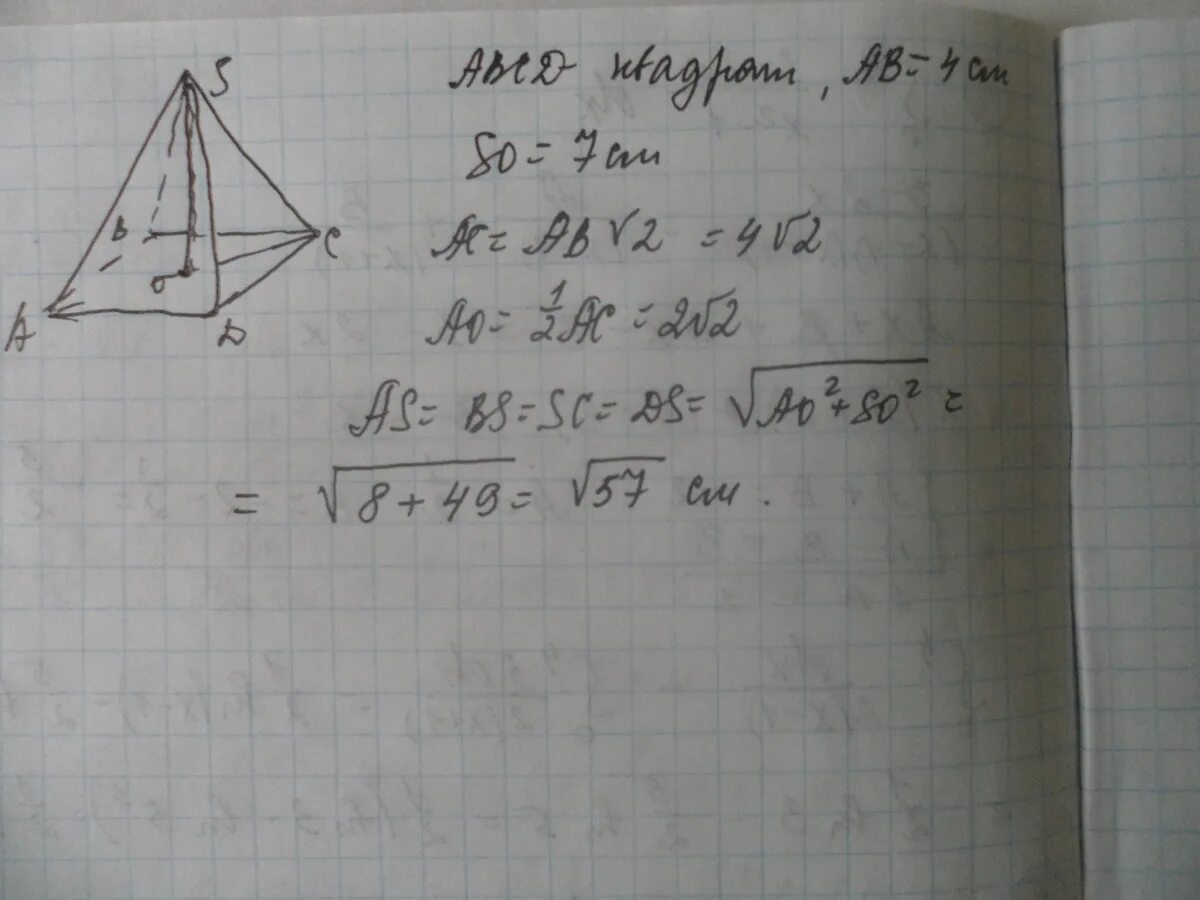 S
B
C
O
A
D
ABCD квадрат, AB = 4 см
SO = 7 см
AC = AB √2 = 4√2
AO = 1/2 AC = 2√2
AS = BS = SC = DS = √(AO² + SO²) =
= √(8 + 49) = √57 см.